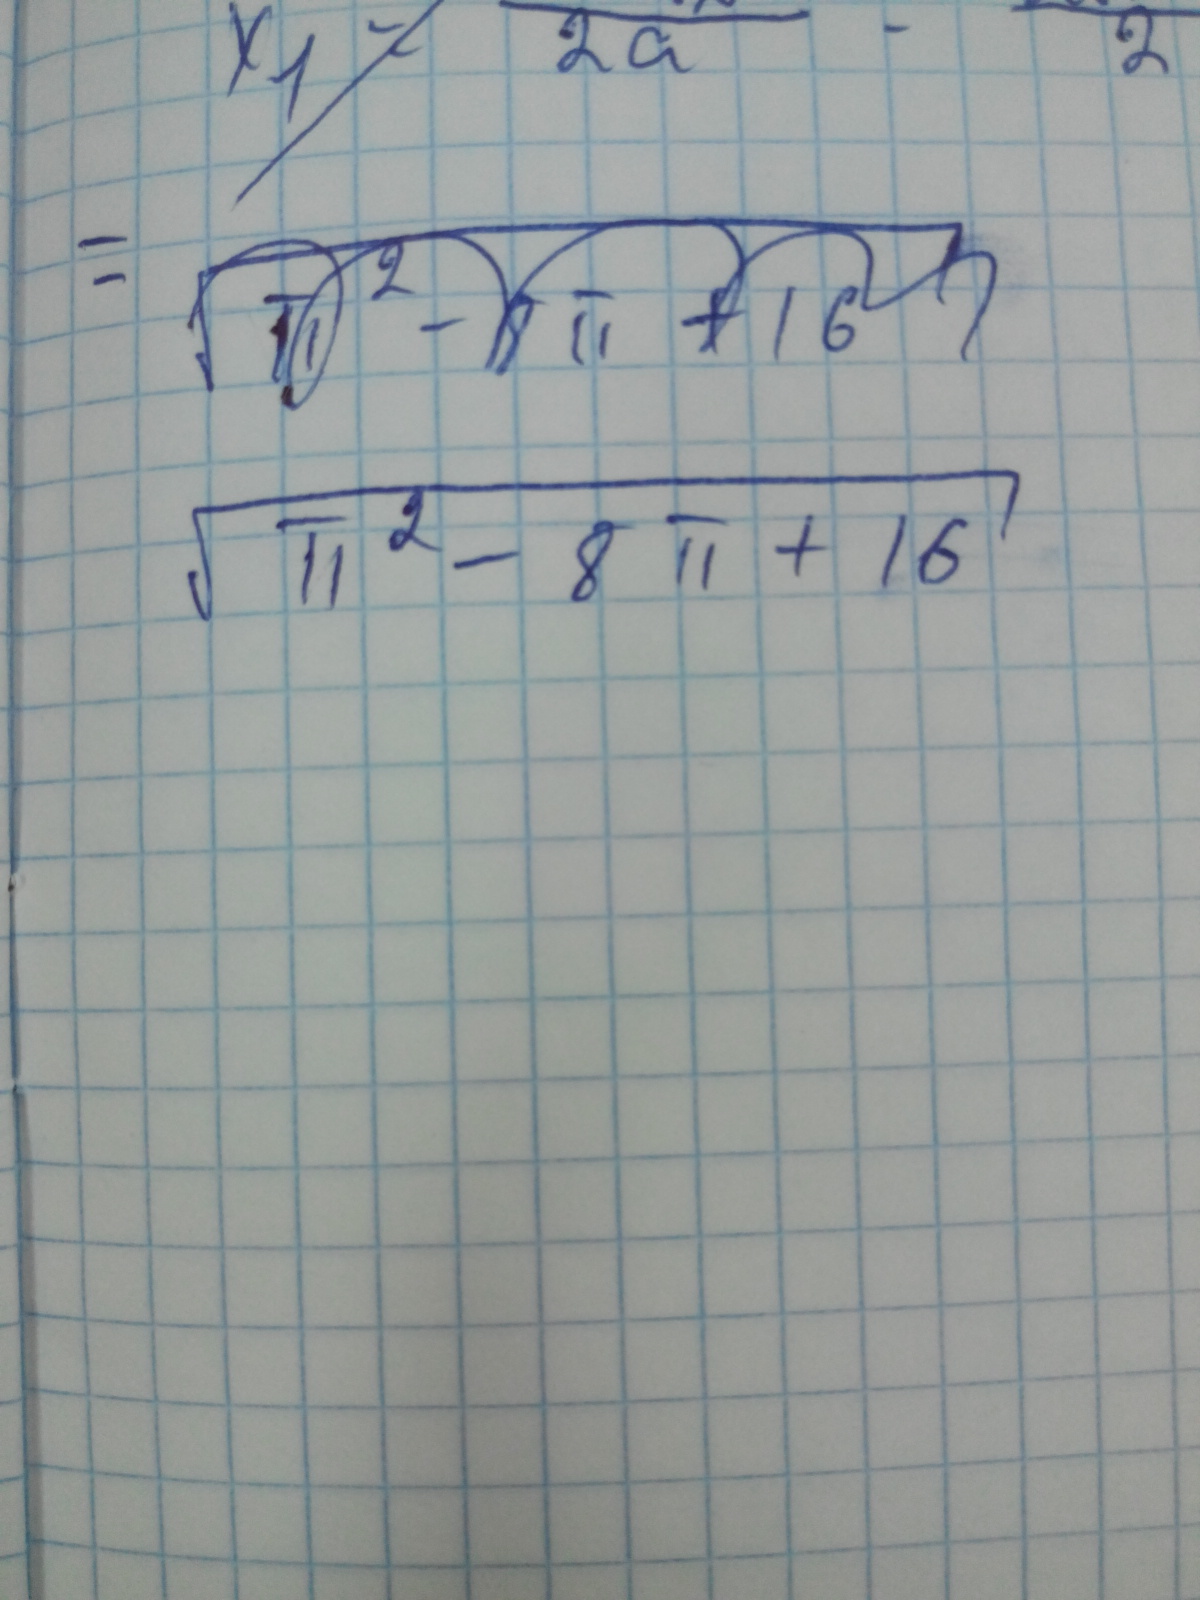 x₁ = 2a - 2
= √π² - 8π + 16
√π² - 8π + 16